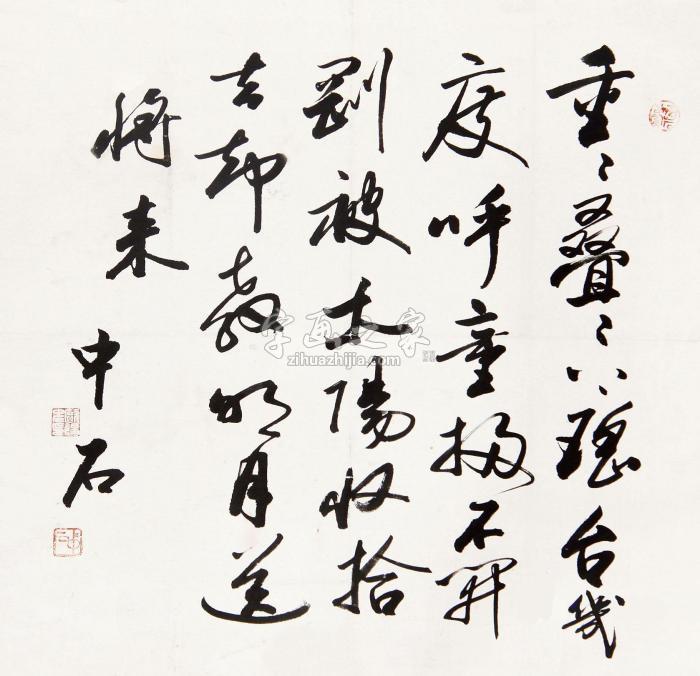 重〻叠〻上瑶台幾
度呼童掃不開
剛被太陽收拾
去却教明月送
將来
中石
字画之家
zihuazhijia.com